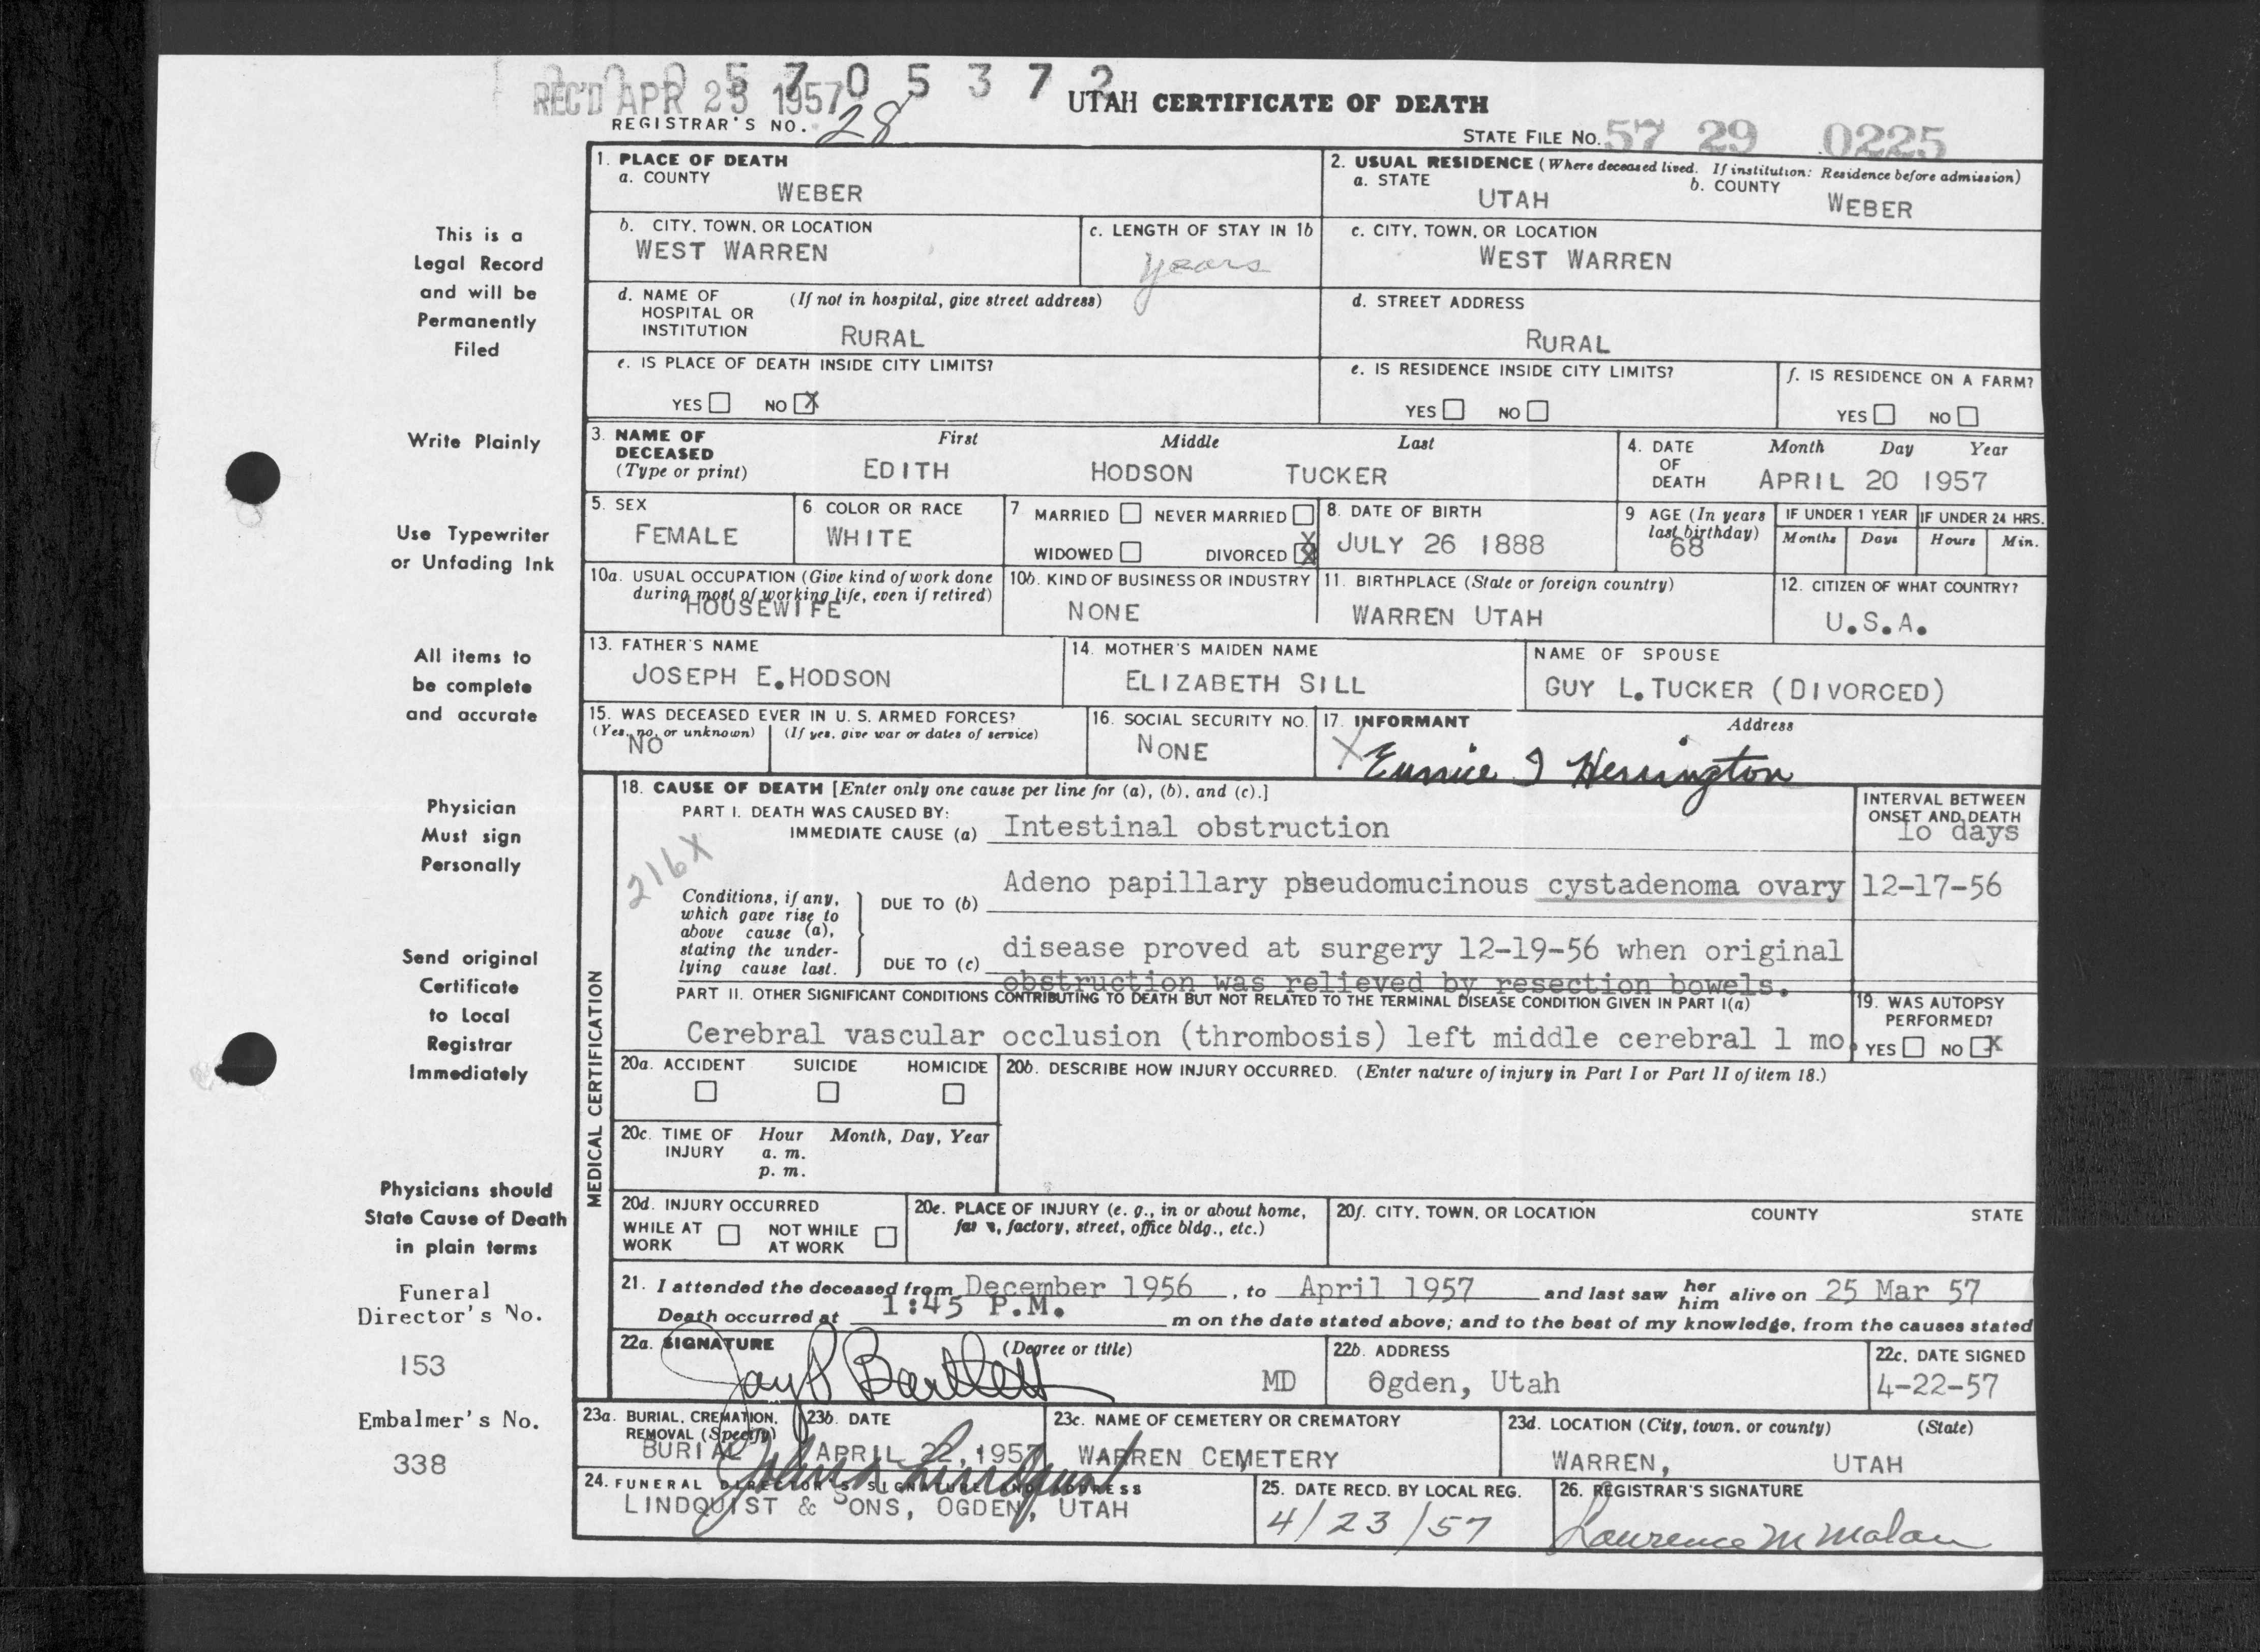 0 0 0 5 7 0 5 3 7 2
REC'D APR 23 1957
UTAH CERTIFICATE OF DEATH
REGISTRAR'S NO. 28
STATE FILE NO. 57 29 0225
1. PLACE OF DEATH
a. COUNTY
WEBER
2. USUAL RESIDENCE (Where deceased lived. If institution: Residence before admission)
a. STATE
UTAH
b. COUNTY
WEBER
b. CITY, TOWN, OR LOCATION
WEST WARREN
c. LENGTH OF STAY IN 1b
years
c. CITY, TOWN, OR LOCATION
WEST WARREN
d. NAME OF HOSPITAL OR INSTITUTION
(If not in hospital, give street address)
RURAL
d. STREET ADDRESS
RURAL
e. IS PLACE OF DEATH INSIDE CITY LIMITS?
YES NO X
e. IS RESIDENCE INSIDE CITY LIMITS?
YES NO
f. IS RESIDENCE ON A FARM?
YES NO
3. NAME OF DECEASED
(Type or print)
First Middle Last
EDITH HODSON TUCKER
4. DATE OF DEATH
Month Day Year
APRIL 20 1957
5. SEX
FEMALE
6 COLOR OR RACE
WHITE
7 MARRIED NEVER MARRIED
WIDOWED DIVORCED X
8. DATE OF BIRTH
JULY 26 1888
9 AGE (In years last birthday)
68
IF UNDER 1 YEAR
Months Days
IF UNDER 24 HRS.
Hours Min.
10a. USUAL OCCUPATION (Give kind of work done during most of working life, even if retired)
HOUSEWIFE
10b. KIND OF BUSINESS OR INDUSTRY
NONE
11. BIRTHPLACE (State or foreign country)
WARREN UTAH
12. CITIZEN OF WHAT COUNTRY?
U.S.A.
13. FATHER'S NAME
JOSEPH E.HODSON
14. MOTHER'S MAIDEN NAME
ELIZABETH SILL
NAME OF SPOUSE
GUY L.TUCKER (DIVORCED)
15. WAS DECEASED EVER IN U. S. ARMED FORCES?
(Yes, no, or unknown) (If yes, give war or dates of service)
NO
16. SOCIAL SECURITY NO.
NONE
17. INFORMANT Address
X Eunice I Herrington
MEDICAL CERTIFICATION
18. CAUSE OF DEATH [Enter only one cause per line for (a), (b), and (c).]
PART I. DEATH WAS CAUSED BY:
IMMEDIATE CAUSE (a) Intestinal obstruction
INTERVAL BETWEEN ONSET AND DEATH
1o days
216X
Conditions, if any, which gave rise to above cause (a), stating the underlying cause last.
DUE TO (b) Adeno papillary pseudomucinous cystadenoma ovary
12-17-56
DUE TO (c) disease proved at surgery 12-19-56 when original
obstruction was relieved by resection bowels.
PART II. OTHER SIGNIFICANT CONDITIONS CONTRIBUTING TO DEATH BUT NOT RELATED TO THE TERMINAL DISEASE CONDITION GIVEN IN PART I(a)
Cerebral vascular occlusion (thrombosis) left middle cerebral 1 mo.
19. WAS AUTOPSY PERFORMED?
YES NO X
20a. ACCIDENT SUICIDE HOMICIDE
20b. DESCRIBE HOW INJURY OCCURRED. (Enter nature of injury in Part I or Part II of item 18.)
20c. TIME OF INJURY
Hour Month, Day, Year
a. m.
p. m.
20d. INJURY OCCURRED
WHILE AT WORK NOT WHILE AT WORK
20e. PLACE OF INJURY (e. g., in or about home, farm, factory, street, office bldg., etc.)
20f. CITY, TOWN, OR LOCATION COUNTY STATE
21. I attended the deceased from December 1956, to April 1957 and last saw her him alive on 25 Mar 57
Death occurred at 1:45 P.M. m on the date stated above; and to the best of my knowledge, from the causes stated
22a. SIGNATURE (Degree or title)
Jay P Bartlett MD
22b. ADDRESS
Ogden, Utah
22c. DATE SIGNED
4-22-57
23a. BURIAL, CREMATION, REMOVAL (Specify)
BURIAL
23b. DATE
APRIL 22, 1957
23c. NAME OF CEMETERY OR CREMATORY
WARREN CEMETERY
23d. LOCATION (City, town, or county) (State)
WARREN, UTAH
24. FUNERAL DIRECTOR'S SIGNATURE AND ADDRESS
LINDQUIST & SONS, OGDEN, UTAH
25. DATE RECD. BY LOCAL REG.
4/23/57
26. REGISTRAR'S SIGNATURE
Lawrence M Malan
This is a
Legal Record
and will be
Permanently
Filed
Write Plainly
Use Typewriter
or Unfading Ink
All items to
be complete
and accurate
Physician
Must sign
Personally
Send original
Certificate
to Local
Registrar
Immediately
Physicians should
State Cause of Death
in plain terms
Funeral
Director's No.
153
Embalmer's No.
338